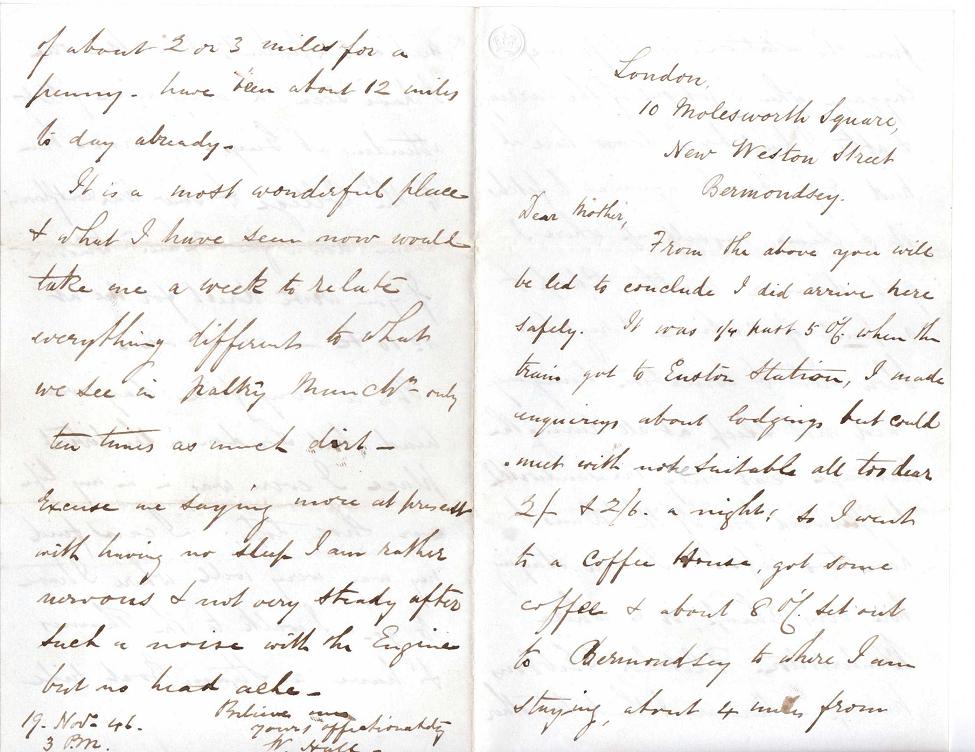 London,
10 Molesworth Square,
New Weston Street
Bermondsey.
Dear Mother,
From the above you will
be led to conclude I did arrive here
safely. It was 1/4 past 5 O/C when the
train got to Euston Station, I made
enquireys about lodgings but could
meet with note suitable all too dear
2/- & 2/6. a night; so I went
to a Coffee House, got some
coffee & about 8 O/C set out
to Bermondsey to where I am
staying, about 4 miles from
of about 2 or 3 miles for a
penny - have been about 12 miles
to day already -
It is a most wonderful place
& what I have seen now would
take me a week to relate
everything different to what
we see in paltry Manchr only
ten times as much dirt -
Excuse me saying more at present
with having no sleep I am rather
nervous & not very steady after
such a noise with the Engine
but no head ache -
Believe me
yours affectionately
W. Hall -
19. Novr 46.
3 P.M.